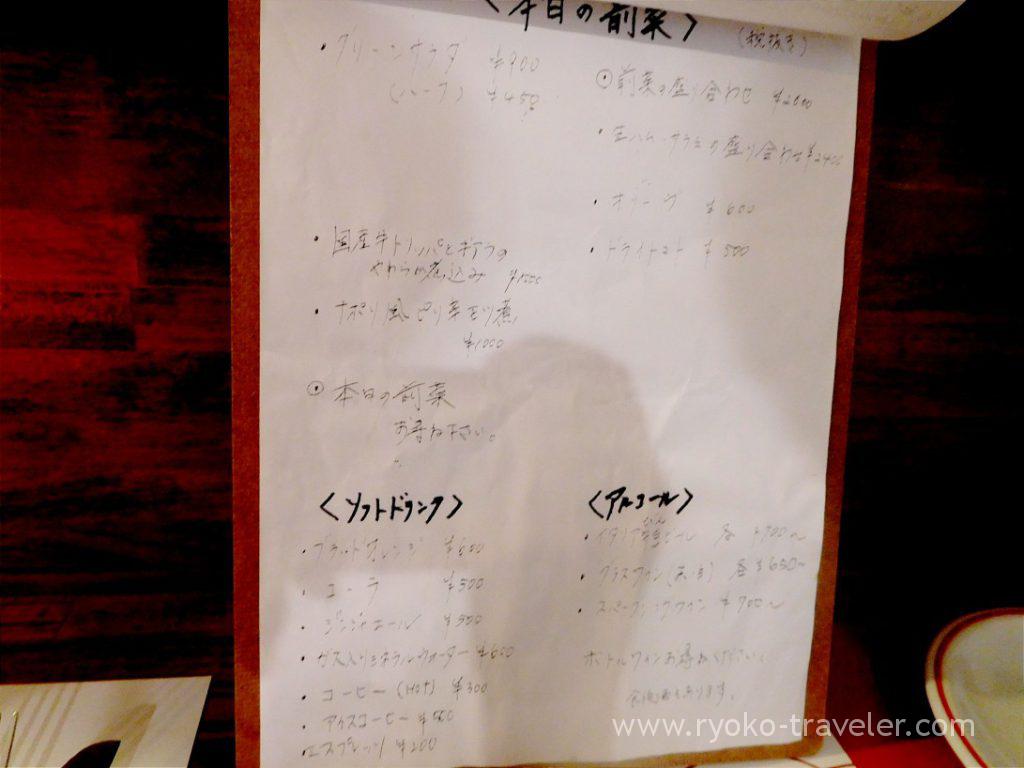 〈本日の前菜〉
(税抜き)
・グリーンサラダ ¥900
(ハーフ) ¥450
・国産牛トリッパとギアラの
やわらか煮込み ¥1500
・ナポリ風ピリ辛モツ煮
¥1000
⊙本日の前菜
お尋ね下さい。
⊙前菜の盛り合わせ ¥2000
・生ハム・サラミの盛り合わせ ¥2400
・オリーブ ¥600
・ドライトマト ¥500
〈ソフトドリンク〉
・ブラッドオレンジ ¥600
・コーラ ¥500
・ジンジャエール ¥500
・ガス入りミネラルウォーター ¥600
・コーヒー(HOT) ¥300
・アイスコーヒー ¥500
・エスプレッソ ¥200
〈アルコール〉
・イタリア ビール 各 ¥700〜
・グラスワイン(赤,白) 各¥650〜
・スパークリングワイン ¥900〜
ボトルワインお尋ねください。
www.ryoko-traveler.com